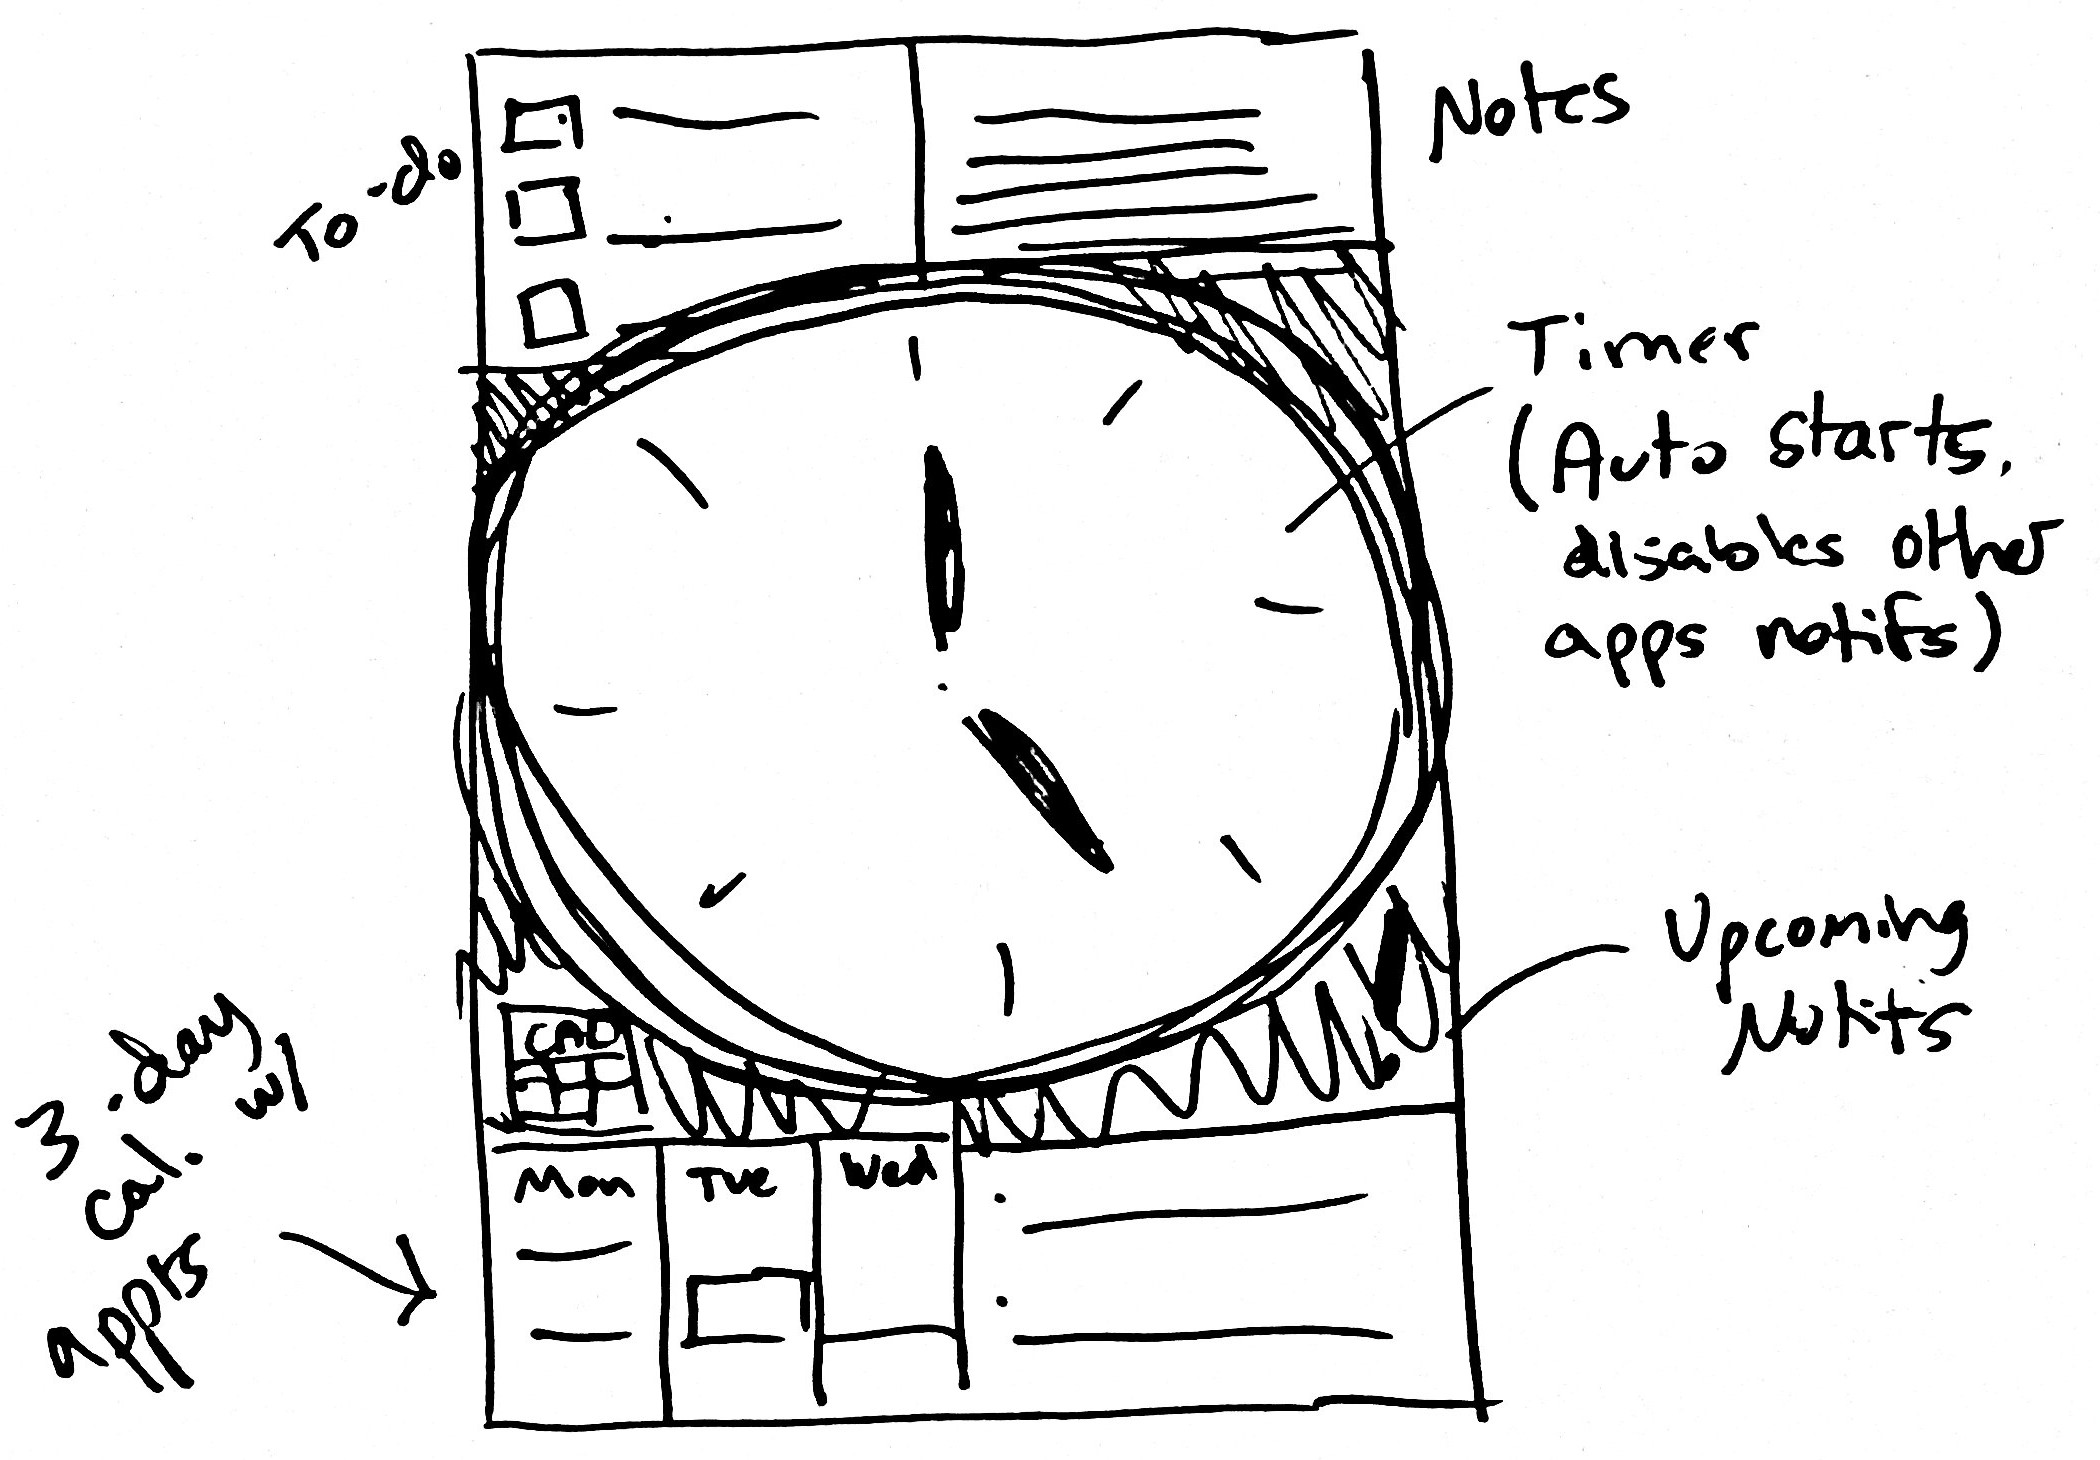 To-do
Notes
Timer
(Auto starts,
disables other
apps notifs)
Upcoming
Notifs
3-day
cal. w/
appts
CAL
Mon Tue Wed